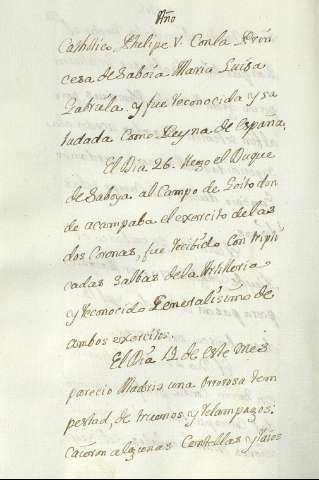 Año
Catholico, Phelipe V. Con la Prin
cesa de Saboia Maria Luisa
Gabriela y fue reconocida y sa
ludada Como Reyna de España.
El Dia 26. llego el Duque
de Saboya al Campo de Goito don
de acampaba el exercito de las
dos Coronas, fue recibido con tripli
cadas salbas de la Artilleria
y reconocido Generalisimo de
ambos exercitos.
El Dia 12 de este mes
parecio Madrid una orrorosa tem
pestad, de truenos y relampagos:
caieron algunas Centellas y raios